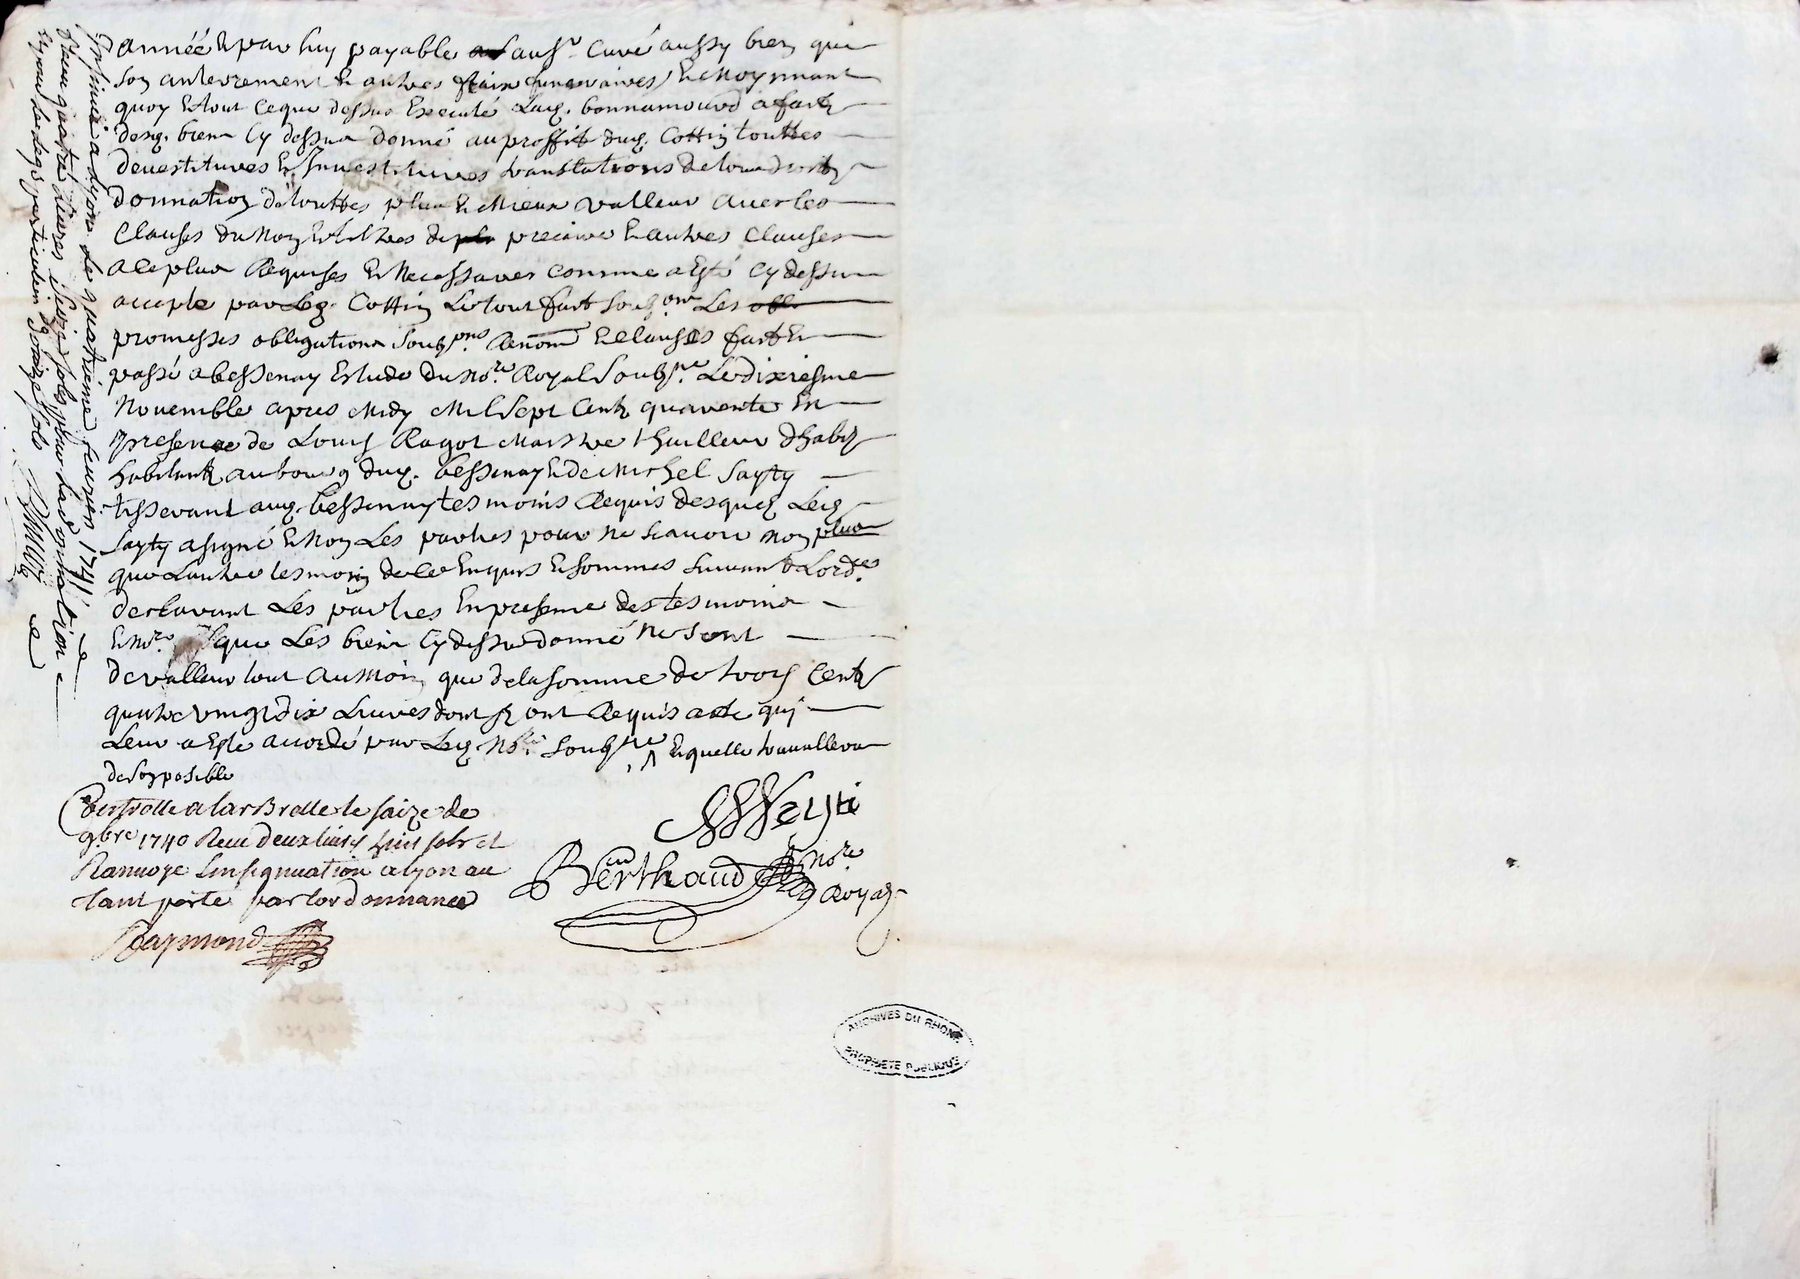 dannéé & par luy payable au s.r Curé aussy bien que
son anterrement & autres fraix funeraires Et Moynnant
quoy & tout ce que dessus Executé Led. bonnamour a fait
desd. biens Cy dessus donné au proffit dud. Cottin touttes
devestitures & Investitures translations de tous droits
donnation de touttes plus & Mieux valleur avec les
Clauses du Nom & tiltres de precaire & autres Clauses
a ce plus Requises & Necessaires comme a Esté Cy dessus
accepté par Led. Cottin Le tout fait soub Les
promesses obligations soub.ons Renom & clauses fait &
passé a bessenay Estude du No.re Royal soub.ne Le dixiesme
Novembre apres Midy Mil Sept Cent quarente En
presence de Louis Ragot Maistre thailleur dhabits
habitant au bourg dud. bessenay & de Michel Sayty
tisserant aud. bessenay tesmoins Requis desquels Led.
Sayty a signé & Non Les parties pour ne scavoir non plus
que Lautre tesmoin de ce Enquis & sommes suivant Lord.ce
declarant Les parties En presence des tesmoins
& No.re que Les biens Cy dessus donné Ne sont
de valleur tout au Moin que de la somme de trois Cents
quatre vingt dix Livres dont ils ont Requis acte qui
Leur a Esté accordé par Led. No.re soub.ne & quelle travallera
de son posible
Controllé a larBrelle le saize de
9bre 1740 Receu deux livres huit sols et
Ranvoye Linsignuation a Lyon au
tant porté par lordonnance
Raymond
Berthaud No.re
Royal
Insinué a Lyon le quatrieme fevrier 1741
Receu quatre livres seize sols pour la donation
et pour le legs particulier douze sols
ARCHIVES DU RHONE
PROPRIETE PUBLIQUE